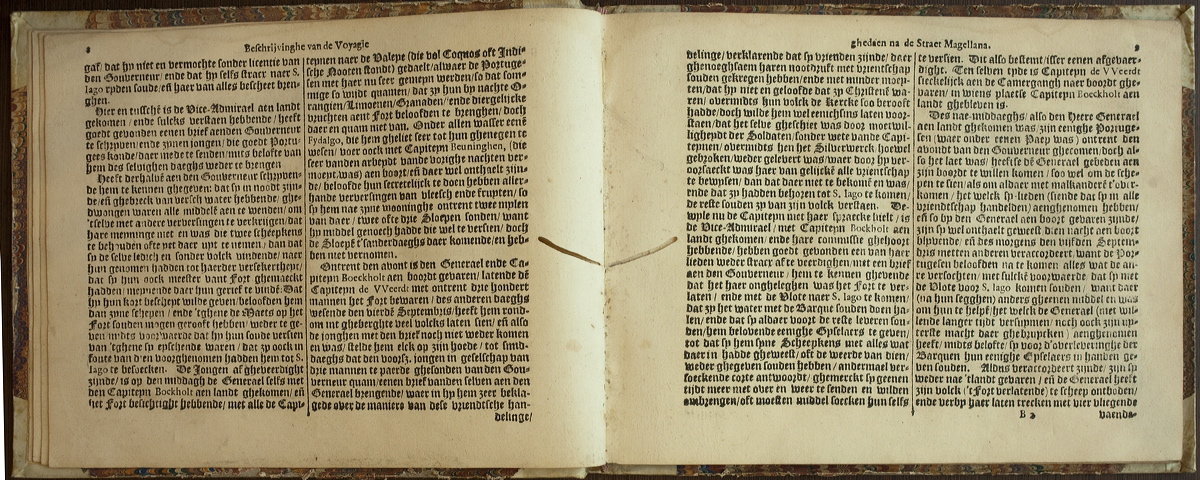 8
Beschrijvinghe van de Voyagie
gaf/ dat hy niet en vermochte sonder licentie van
den Gouverneur/ ende dat hy selfs straer naer S.
Iago ryden soude/ eñ haer van alles bescheet bren-
ghen.
Hier en tusschẽ is de Vice-Admirael aen landt
gekomen/ ende sulcks verstaen hebbende/ heeft
goedt gevonden eenen brief aenden Gouverneur
te schryven/ ende zynen jongen/ die goedt Portu-
gees konde/ daer mede te senden/ mits belofte van
hem des selvighen daeghs weder te brengen.
Heeft derhalvẽ aen den Gouverneur schryven-
de hem te kennen ghegeven: dat sy in noodt zijn-
de/ eñ ghebreck van versch water hebbende/ ghe-
dwangen waren alle middelẽ aen te wenden/ om
'tselve met andere ververssingen te verkrijgen; dat
hare meninge niet en was die twee scheepkens
te behouden ofte yet daer uyt te nemen/ dan dat
sy de selve ledich en sonder volck vindende/ naer
hun genomen hadden tot haerder versekertheyt/
dat sy hun oock meester vant Fort ghemaeckt
hadden/ meynende daer hun gerief te vindẽ: Dat
hy hun kort beschept wilde geven/ beloofden hem
dan zyne schepen/ ende 'tghene de Maets op het
Fort souden mogen gerooft hebben/ weder te ge-
ven/ mits voorwaerde dat hy hun soude versien
van 'tghene sy epschende waren/ dat zy oock in
foute van dien voorghenomen hadden hem tot S.
Iago te besoecken. De Jongen afgheveerdight
zijnde/ is op den middagh de Generael selfs met
den Capiteyn Bockholt aen landt ghekomen/ eñ
het Fort beschicht hebbende/ met alle de Capi-
teynen naer de Valeye (die vol Coqnos oft Indi-
sche Nooten stondt) gedaelt/ alwaer de Portuge-
sen met haer nu seer gemeyn werden/ so dat som-
mige so wijdt quamen/ dat zy hun by nachte O-
rangien/ Limoenen/ Granaden/ ende diergelijcke
vruchten aent Fort beloofden te brenghen/ doch
daer en quam niet van. Onder allen wasser eenẽ
Fydalgo, die hem ghelicet seer tot hun ghenegen te
wesen/ voer oock met Capiteyn Beuninghen, (die
seer vanden arbeydt vande vorighe nachten ver-
moeyt was) aen boort/ eñ daer wel onthaelt zijn-
de/ beloofde hun secretelijck te doen hebben aller-
hande ververssingen van vleesch ende fruyten/ so
sy hem naer zyne wooninghe ontrent twee mylen
van daer/ twee ofte drie Sloepen sonden/ want
hy middel genoech hadde die wel te versien/ doch
de Sloepẽ t'sanderdaeghs daer komende/ en heb-
ben niet vernomen.
Ontrent den avont is den Generael ende Ca-
piteyn Bockholt aen boordt gevaren/ latende dẽ
Capiteyn de VVeerdt met ontrent drie hondert
mannen het Fort bewaren/ des anderen daeghs
wesende den vierdẽ Septembris/ heeft hem rond-
om int gheberghte veel volcks laten sien/ eñ also
de jonghen met den brief noch niet weder komen
en was/ stelde hem elck op zijn hoede/ tot smid-
daeghs dat den voorsz. jongen in geselschap van
drie mannen te paerde ghesonden van den Gou-
verneur quam/ eenen brief van den selven aen den
Generael brengende/ waer in hy hem zeer bekla-
gede over de maniere van dese vriendtsche han-
delinge/
ghedaen na de Straet Magellana.
9
delinge/ verklarende dat sy vrienden zijnde/ daer
ghenoeghsaem haren nootdruft met vrientschap
souden gekregen hebben/ ende met minder moey-
ten/ dat hy niet en geloofde dat zy Christenẽ wa-
ren/ overmidts hun volck de Kercke soo berooft
hadde/ doch wilde hem wel eenichsins laten voor-
staen/ dat het selve gheschiet was door moetwil-
ligheydt der Soldaten/ sonder wete vande Capi-
teynen/ overmidts hen het Silverwerck hoewel
gebroken/ weder gelevert was/ waer door hy ver-
oorsaeckt was haer van gelijckẽ alle vrientschap
te bewysen/ dan dat daer niet te bekomẽ en was/
ende dat zy hadden behoren tot S. Iago te komen/
de reste souden zy van zijn volck verstaen. De-
wyle nu de Capiteyn met haer spraecke hielt/ is
de Vice-Admirael/ met Capiteyn Bockholt aen
landt ghekomen/ ende hare commissie ghehoort
hebbende/ hebben goedt gevonden een van haer-
lieden weder stracx af te veerdighen met een brief
aen den Gouverneur/ hem te kennen ghevende
dat het haer ongheleghen was het Fort te ver-
laten/ ende met de Vlote naer S. Iago te komen/
dat zy het water met de Barque souden doen ha-
len/ ende dat sy aldaer voort de reste leveren sou-
den/ hem belovende eenighe Gyselaers te geven/
tot dat sy hem syne Scheepkens met alles wat
daer in hadde gheweest/ oft de weerde van dien/
weder ghegeven souden hebben/ andermael ver-
soeckende corte antwoordt/ ghemerckt sy geenen
tijdt meer met over en weer te senden en wilden
ombrengen/ oft moesten middel soecken hun selfs
te versien. Dit also bestemt/ isser eenen afgeveer-
dight. Ten selven tyde is Capiteyn de VVeerdt
sieckelijck aen de Camergangh naer boordt ghe-
varen/ in wiens plaetse Capiteyn Boeckholt aen
landt ghebleven is.
Des nae-middaeghs/ also den Heere Generael
aen landt ghekomen was/ zijn eenighe Portuge-
sen (waer onder eenen Paep was) ontrent den
avondt van den Gouverneur ghecomen/ doch al-
so het laet was/ heeft se dẽ Generael gebeden aen
zijn boordt te willen komen/ soo wel om de sche-
pen te sien/ als om aldaer met malkanderẽ t'over-
komen/ het welck sy-lieden (siende dat sy in alle
vriendtschap handelden) aenghenomen hebben/
eñ so by den Generael aen boort gevaren zijnde/
zijn sy wel onthaelt geweest dien nacht aen boort
blyvende/ eñ des morgens den vijfden Septem-
bris metten anderen veraccordeert/ want de Por-
tugesen beloofden na te komen alles wat de an-
dre versochten/ met sulckẽ voorwaerde dat sy met
de Vlote voor S. Iago komen souden/ want daer
(na hun segghen) anders gheenen middel en was
om hun te helpẽ/ het welck de Generael (niet wil-
lende langer tijdt versuymen/ noch oock zijn uy-
terste macht daer ghebruycken) aenghenomen
heeft/ midts belofte/ sy voor d'overleveringhe der
Barquen hun eenighe Gyselaers in handen ge-
ven souden. Aldus veraccordeert zijnde/ zijn sy
weder nae 'tlandt gevaren/ eñ de Generael heeft
zijn volck ('t Fort verlatende) te scheep ontboden/
ende verby haer laten trecken met vier vliegende
B 2
vaende-